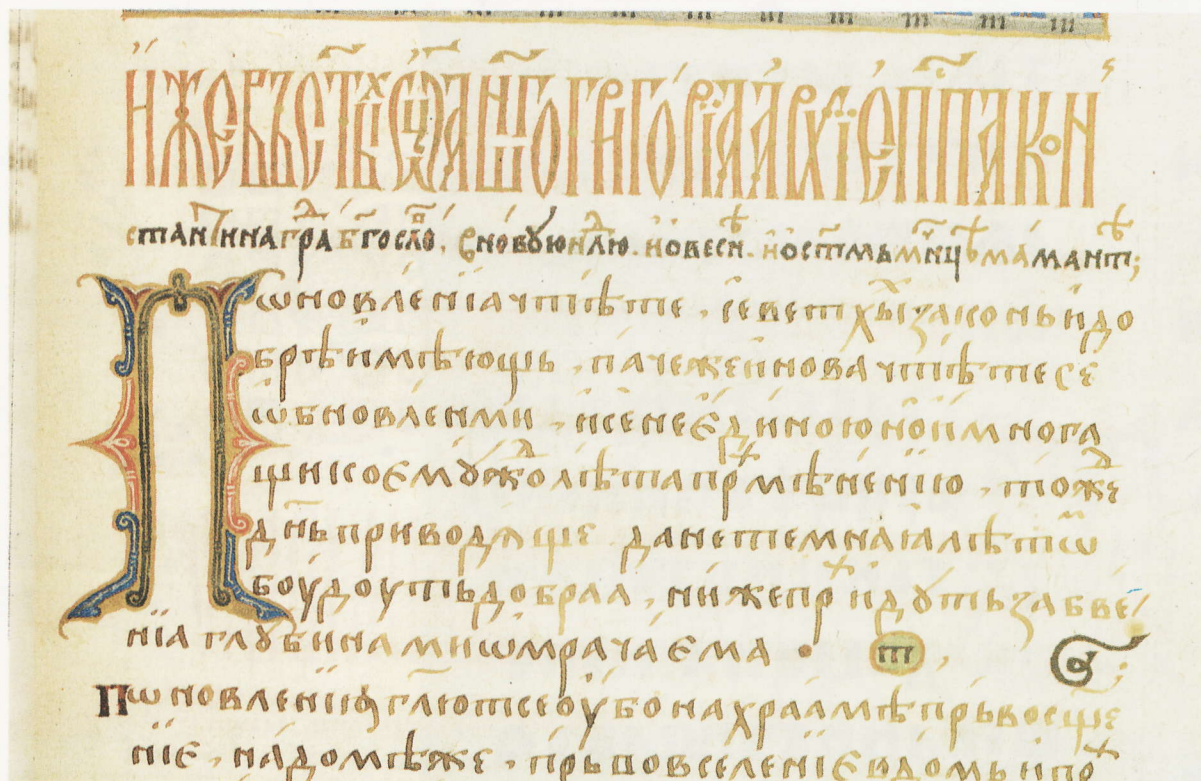 И҆же въ ст҃ы́хъ ѿц҃а нш҃го григо́рїа а҆рхїе҆пп҃а кон
стан̾тина гра́ⷣ б҃госло́ⷡ. в̾ но́вꙋю нⷣлю. и҆ ѻ веснѣ. и҆ ѻ ст҃мь мⷱ҇нцѣ мама́нтѣ;
ѡновле́нїа чт́ѣте, се ве́тхы зако́нь и до
брѣ имѣ́ющь, па́че же и҆ но́ва чт́ѣте се
ѡбновле́нми, и се не є҆ди́ною но и мно́га
щи ко є҆мꙋ́ж̾ⷣо лѣ́та прⷯмѣне́нїю, то́жⷣе
дн҃ь приводѧ́ще да не темна́ꙗ лѣ́тѡ
бꙋ́доуть до́браа, ни́же прⷯи́дꙋть забве́
нїа глꙋбина́ми ѡмрача́є҆ма · т,
Пѡновле́нїю гл҃ютсе оу҆́бо на хра́амѣ прь́вое ѡс҃ще
нїе, на до́мѣ же, прь́вовселе́нїе в̾ до́мь и поⷯ